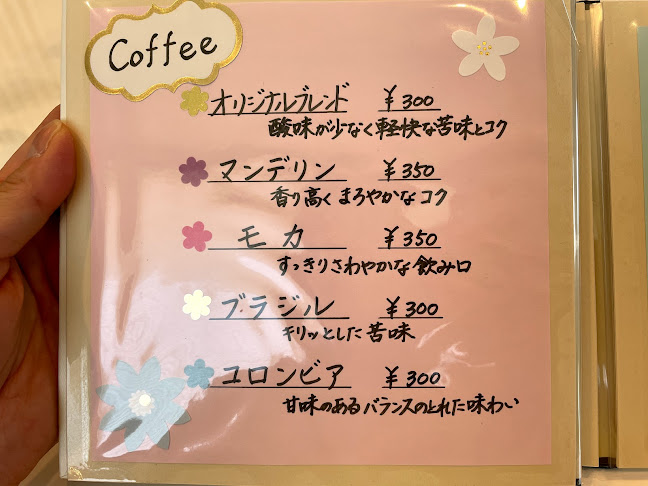 Coffee
オリジナルブレンド ¥300
酸味が少なく軽快な苦味とコク
マンデリン ¥350
香り高くまろやかなコク
モカ ¥350
すっきりさわやかな飲み口
ブラジル ¥300
キリッとした苦味
コロンビア ¥300
甘味のあるバランスのとれた味わい